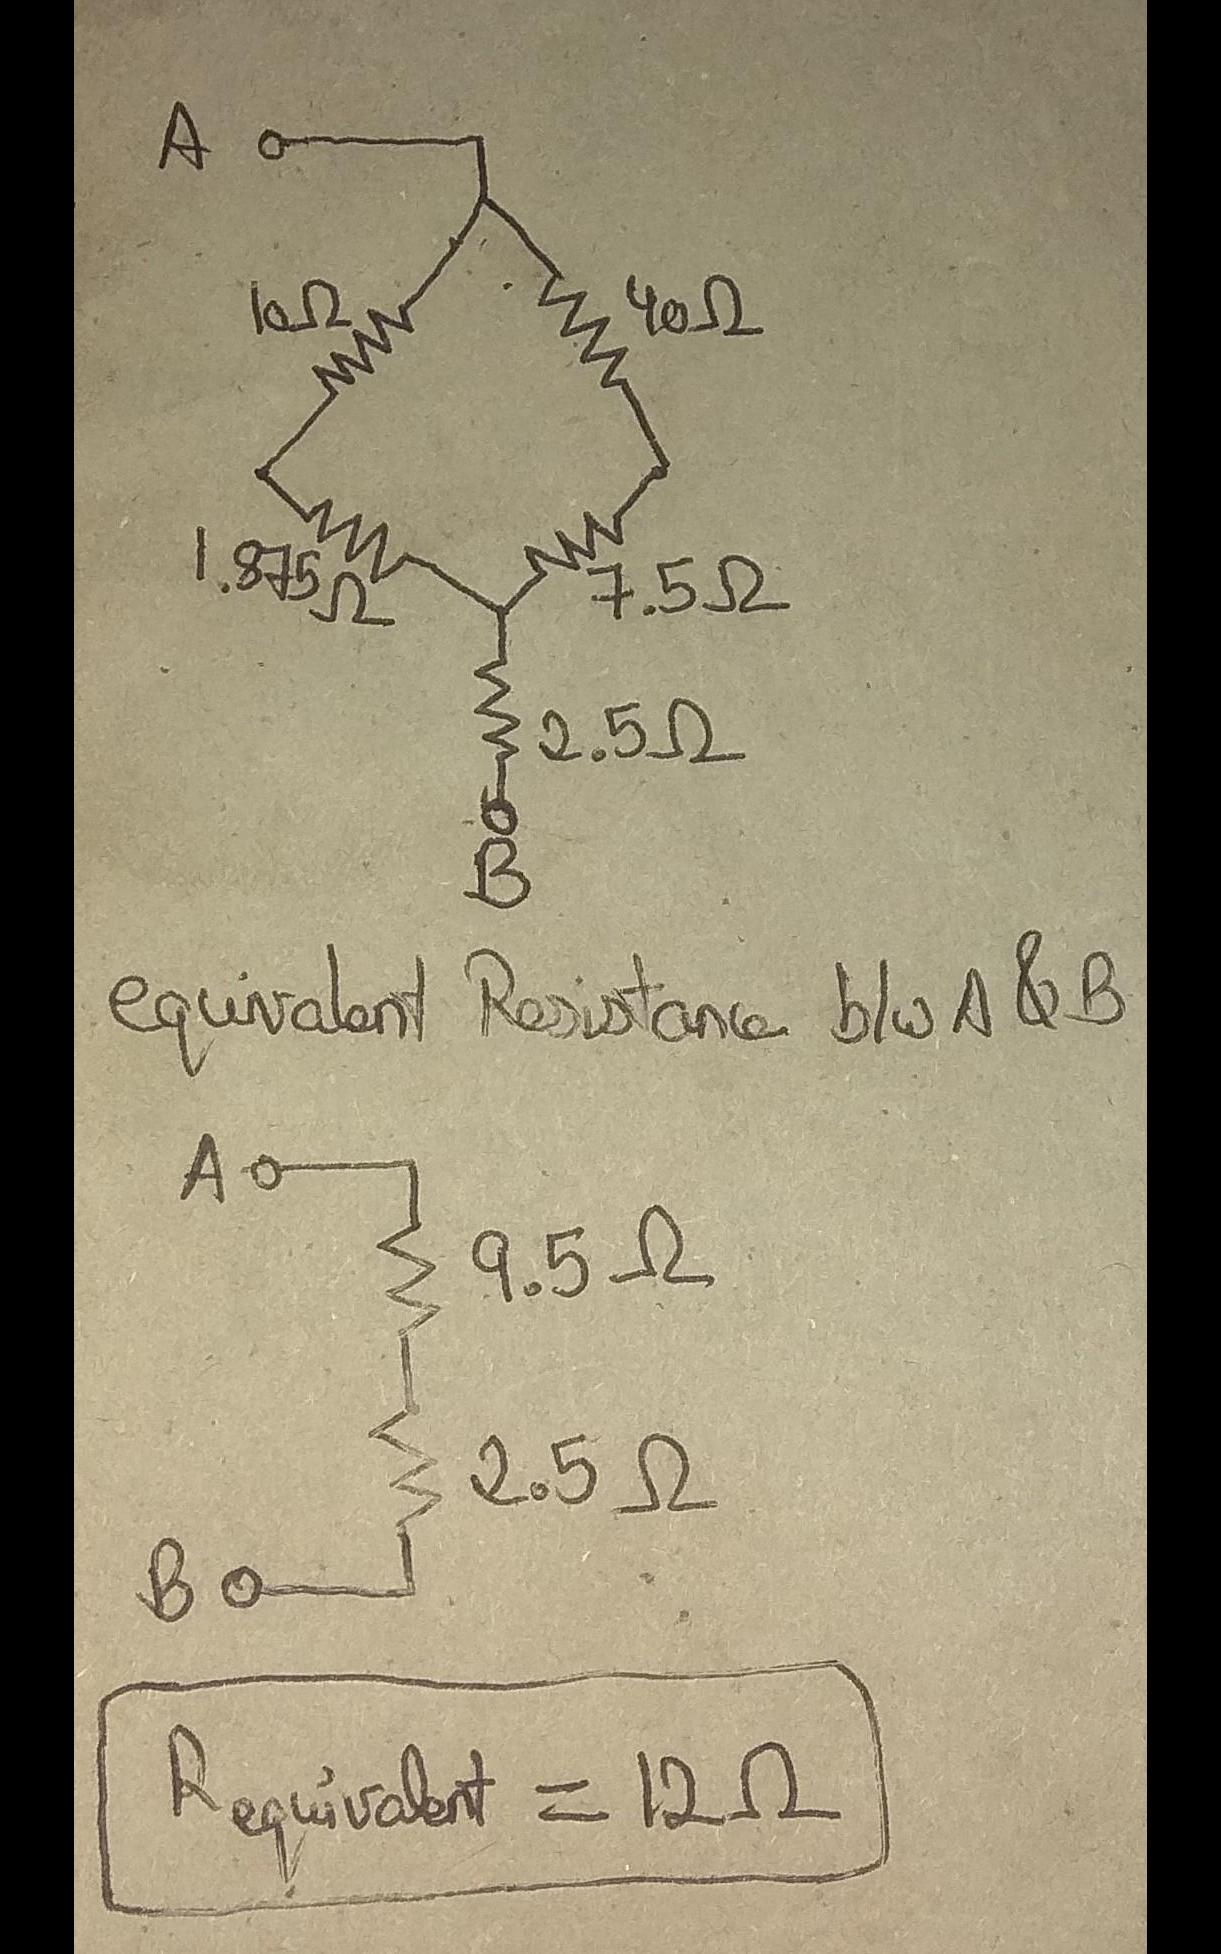 A
10Ω 40Ω
1.875Ω 7.5Ω
2.5Ω
B
equivalent Resistance b/w A & B
A
9.5Ω
2.5Ω
B
Requivalent = 12Ω